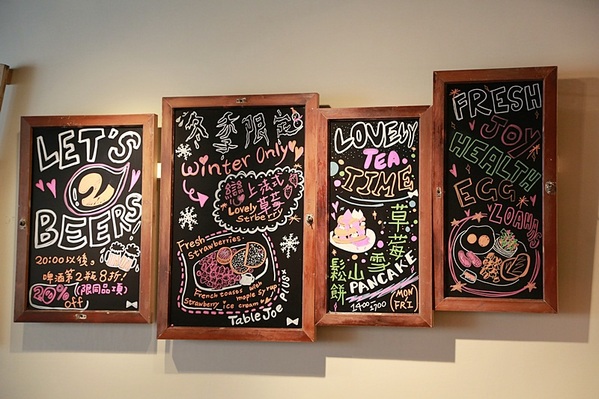 LET'S
2
BEERS
20:00以後。
啤酒第2瓶8折!
20% (限同品項)
off
冬季限定
Winter Only
戀上法式
心 草莓
Lovely
Strberry
Fresh
Strawberries.
French toases with
maple syrup
Strawberry ice cream
Table Joe PLUS
LOVELY
TEA
TIME
草莓
雪山
鬆餅
PANCAKE
14:00-17:00
(MON
FRI)
FRESH
JOY
HEALTH
EGG